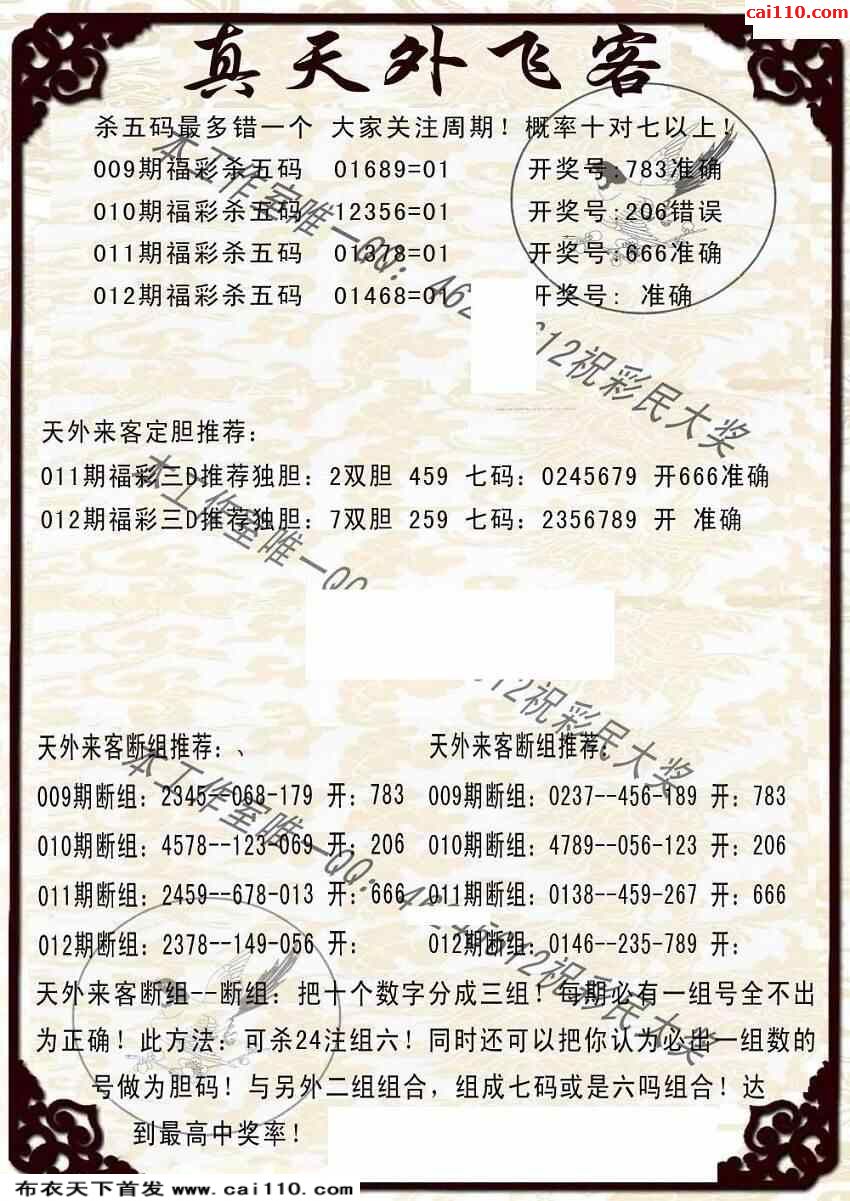 cai110.com
真天外飞客
杀五码最多错一个 大家关注周期！概率十对七以上！
009期福彩杀五码 01689=01 开奖号:783准确
010期福彩杀五码 12356=01 开奖号:206错误
011期福彩杀五码 01378=01 开奖号:666准确
012期福彩杀五码 01468=01 开奖号: 准确
天外来客定胆推荐：
011期福彩三D推荐独胆：2双胆 459 七码：0245679 开666准确
012期福彩三D推荐独胆：7双胆 259 七码：2356789 开 准确
天外来客断组推荐：、
009期断组：2345--068-179 开：783
010期断组：4578--123-069 开：206
011期断组：2459--678-013 开：666
012期断组：2378--149-056 开：
天外来客断组推荐：
009期断组：0237--456-189 开：783
010期断组：4789--056-123 开：206
011期断组：0138--459-267 开：666
012期断组：0146--235-789 开：
天外来客断组--断组：把十个数字分成三组！每期必有一组号全不出
为正确！此方法：可杀24注组六！同时还可以把你认为必出一组数的
号做为胆码！与另外二组组合，组成七码或是六吗组合！达
到最高中奖率！
本工作室唯一QQ：462 612祝彩民大奖
本工作室唯一QQ 612祝彩民大奖
本工作室唯一QQ：46 612祝彩民大奖
布衣天下首发 www.cai110.com